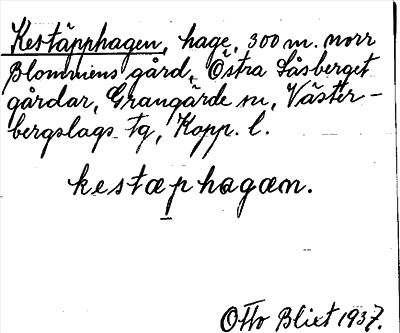 Kestäpphagen, hage, 300 m. norr
Blommens gård, Östra Låsberget
gårdar, Grangärde sn, Väster-
bergslags tg, Kopp. l.
kestæphagæn.
Otto Blixt 1937.